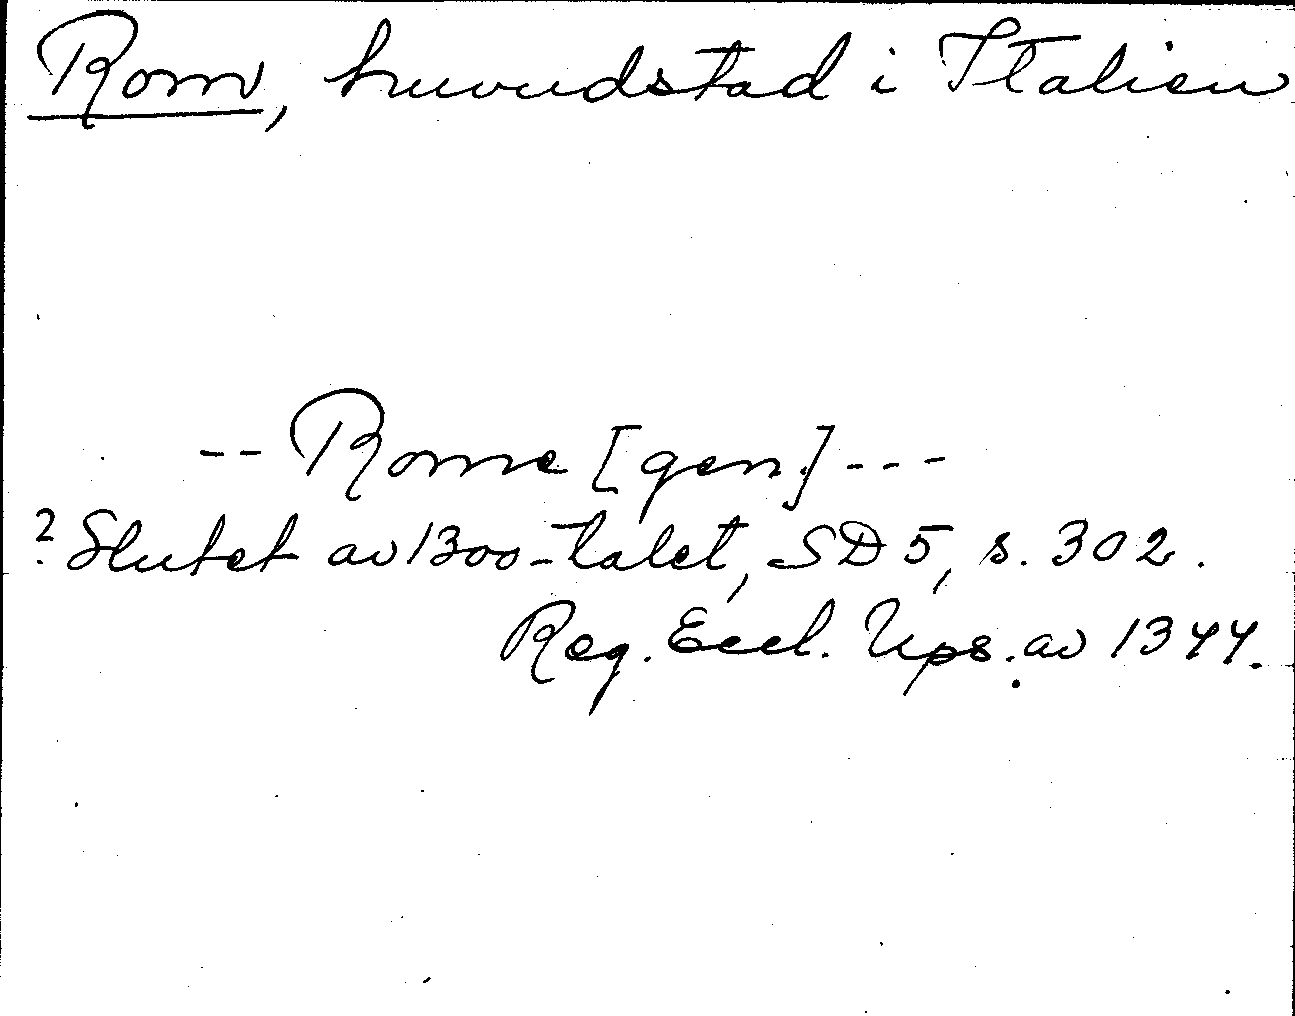 Rom, huvudstad i Italien
-- Rome [gen.] ---
? Slutet av 1300-talet, SD 5, s. 302.
Reg. Eccl. Ups. av 1344.